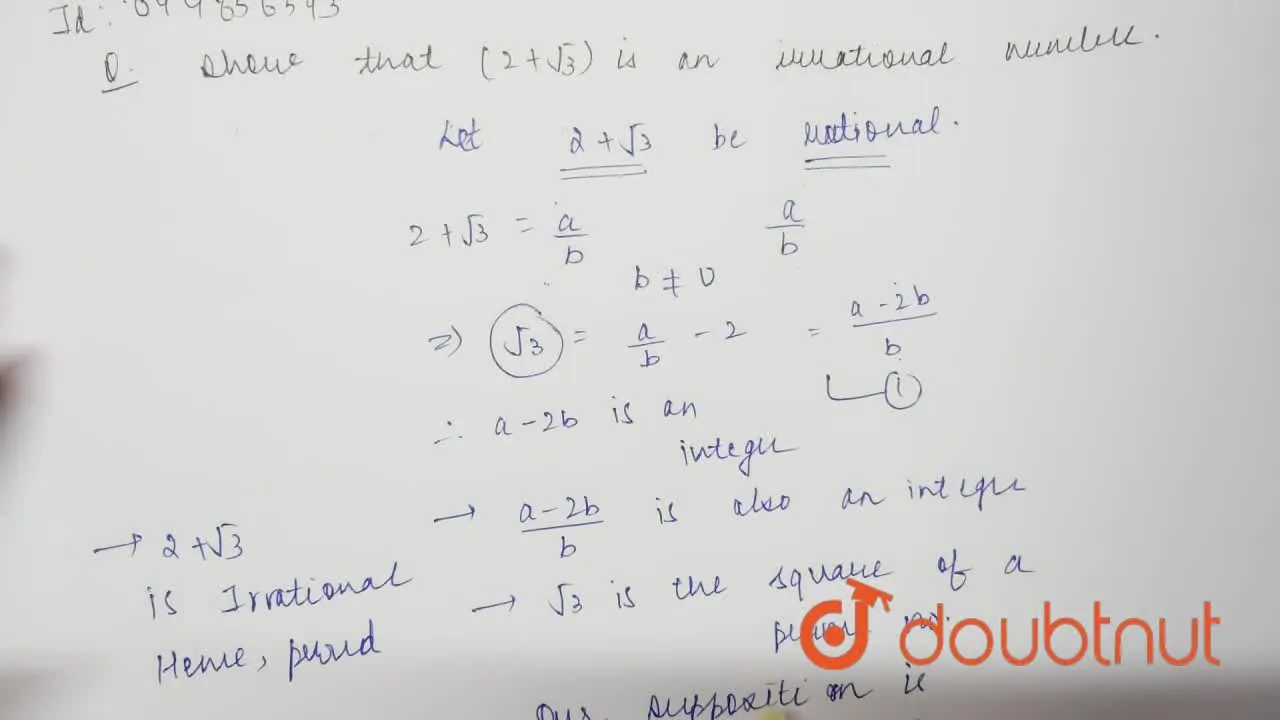 Id:
Q. Show that (2+√3) is an irrational number.
Let 2+√3 be rational.
2+√3 = a/b
a/b
b ≠ 0
⇒ √3 = a/b - 2 = a-2b/b
1
∴ a-2b is an
integer
→ a-2b/b is also an integer
→ √3 is the square of a
prime no.
→ 2+√3
is Irrational
Hence, proved
Our supposition is
doubtnut